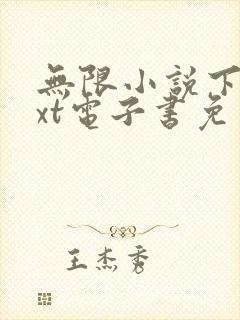 無限小說下
xt電子書免
王杰秀